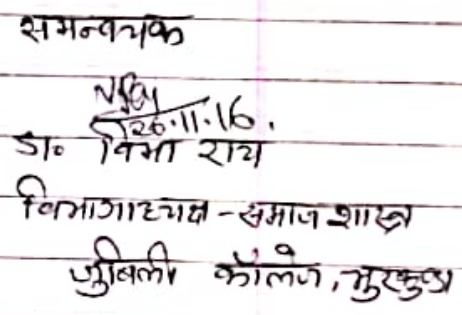 समन्वयक
26.11.16.
डा० विभा राय
विभागाध्यक्ष - समाज शास्त्र
जुबिली कॉलेज, भुरकुण्डा